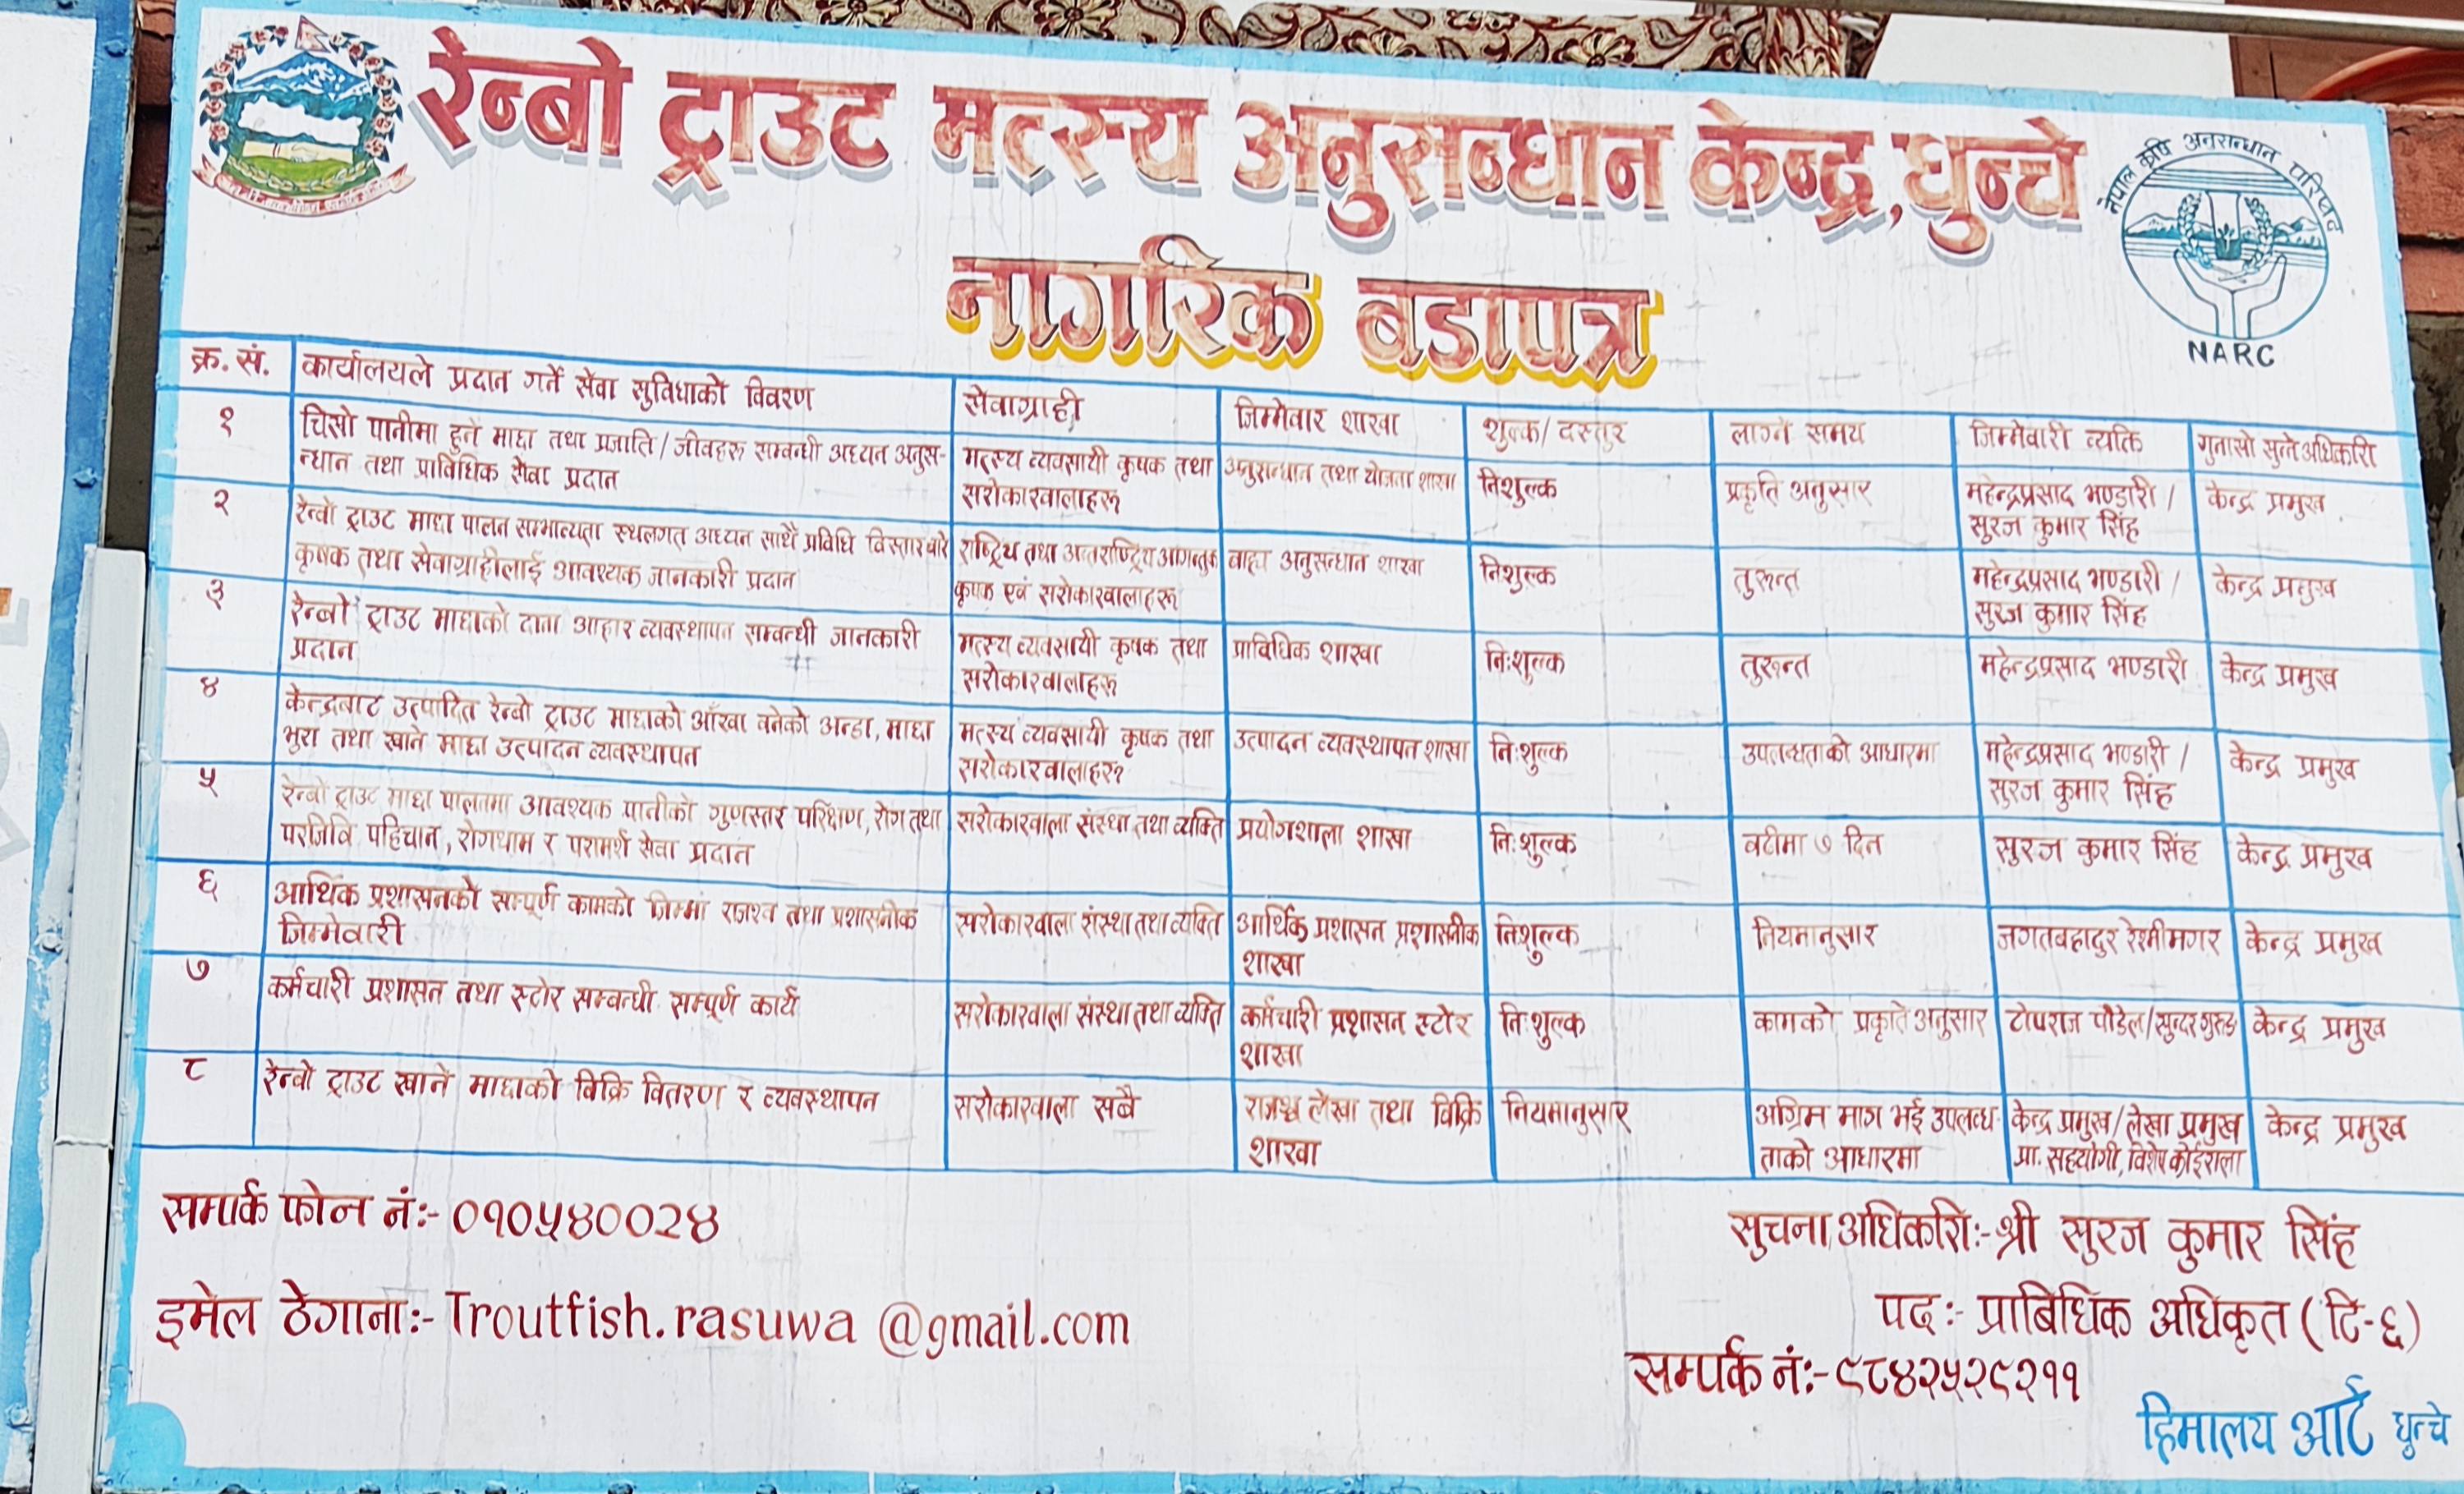 रेन्बो ट्राउट मत्स्य अनुसन्धान केन्द्र, धुन्चे
नेपाल कृषि अनुसन्धान परिषद
NARC
नागरिक बडापत्र
क्र. सं. कार्यालयले प्रदान गर्ने सेवा सुविधाको विवरण सेवाग्राही जिम्मेवार शाखा शुल्क/ दस्तुर लाग्ने समय जिम्मेवारी व्यक्ति गुनासो सुन्ने अधिकारी
१ चिसो पानीमा हुने माछा तथा प्रजाति/जीवहरू सम्बन्धी अध्यन अनुस- मत्स्य व्यवसायी कृषक तथा अनुसन्धान तथा योजना शाखा निशुल्क प्रकृति अनुसार महेन्द्रप्रसाद भण्डारी / केन्द्र प्रमुख
न्धान तथा प्राविधिक सेवा प्रदान सरोकारवालाहरू सुरज कुमार सिंह
२ रेन्बो ट्राउट माछा पालन सम्भाव्यता स्थलगत अध्यन साथै प्रविधि विस्तार बारे राष्ट्रिय तथा अन्तराष्ट्रिय आगन्तुक बाह्य अनुसन्धान शाखा निशुल्क तुरुन्त महेन्द्रप्रसाद भण्डारी / केन्द्र प्रमुख
कृषक तथा सेवाग्राहीलाई आवश्यक जानकारी प्रदान कृषक एवं सरोकारवालाहरू सुरज कुमार सिंह
३ रेन्बो ट्राउट माछाको दाना आहार व्यवस्थापन सम्बन्धी जानकारी मत्स्य व्यवसायी कृषक तथा प्राविधिक शाखा निःशुल्क तुरुन्त महेन्द्रप्रसाद भण्डारी केन्द्र प्रमुख
प्रदान सरोकारवालाहरू
४ केन्द्रबाट उत्पादित रेन्बो ट्राउट माछाको आँखा बनेको अन्डा, माछा मत्स्य व्यवसायी कृषक तथा उत्पादन व्यवस्थापन शाखा निःशुल्क उपलब्धताको आधारमा महेन्द्रप्रसाद भण्डारी / केन्द्र प्रमुख
भुरा तथा खाने माछा उत्पादन व्यवस्थापन सरोकारवालाहरू सुरज कुमार सिंह
५ रेन्बो ट्राउट माछा पालनमा आवश्यक पानीको गुणस्तर परिक्षण, रोग तथा सरोकारवाला संस्था तथा व्यक्ति प्रयोगशाला शाखा निःशुल्क बढीमा ७ दिन सुरज कुमार सिंह केन्द्र प्रमुख
परजिवि पहिचान, रोगथाम र परामर्श सेवा प्रदान
६ आर्थिक प्रशासनको सम्पूर्ण कामको जिम्मा राजश्व तथा प्रशासनीक सरोकारवाला संस्था तथा व्यक्ति आर्थिक प्रशासन प्रशासनीक निशुल्क नियमानुसार जगतबहादुर रेश्मीमगर केन्द्र प्रमुख
जिम्मेवारी शाखा
७ कर्मचारी प्रशासन तथा स्टोर सम्बन्धी सम्पूर्ण कार्य सरोकारवाला संस्था तथा व्यक्ति कर्मचारी प्रशासन स्टोर निःशुल्क कामको प्रकृति अनुसार टोपराज पौडेल/सुन्दर गुरुङ केन्द्र प्रमुख
शाखा
८ रेन्बो ट्राउट खाने माछाको बिक्रि वितरण र व्यवस्थापन सरोकारवाला सबै राजश्व लेखा तथा बिक्रि नियमानुसार अग्रिम माग भई उपलब्ध- केन्द्र प्रमुख/लेखा प्रमुख केन्द्र प्रमुख
शाखा ताको आधारमा प्रा. सहयोगी, विशेष कोईराला
सम्पर्क फोन नं:- ०१०५४००२४
इमेल ठेगाना:- Troutfish.rasuwa @gmail.com
सुचना अधिकारी:- श्री सुरज कुमार सिंह
पद:- प्राबिधिक अधिकृत (टि-६)
सम्पर्क नं:- ९८४२५२९२११
हिमालय आर्ट धुन्चे